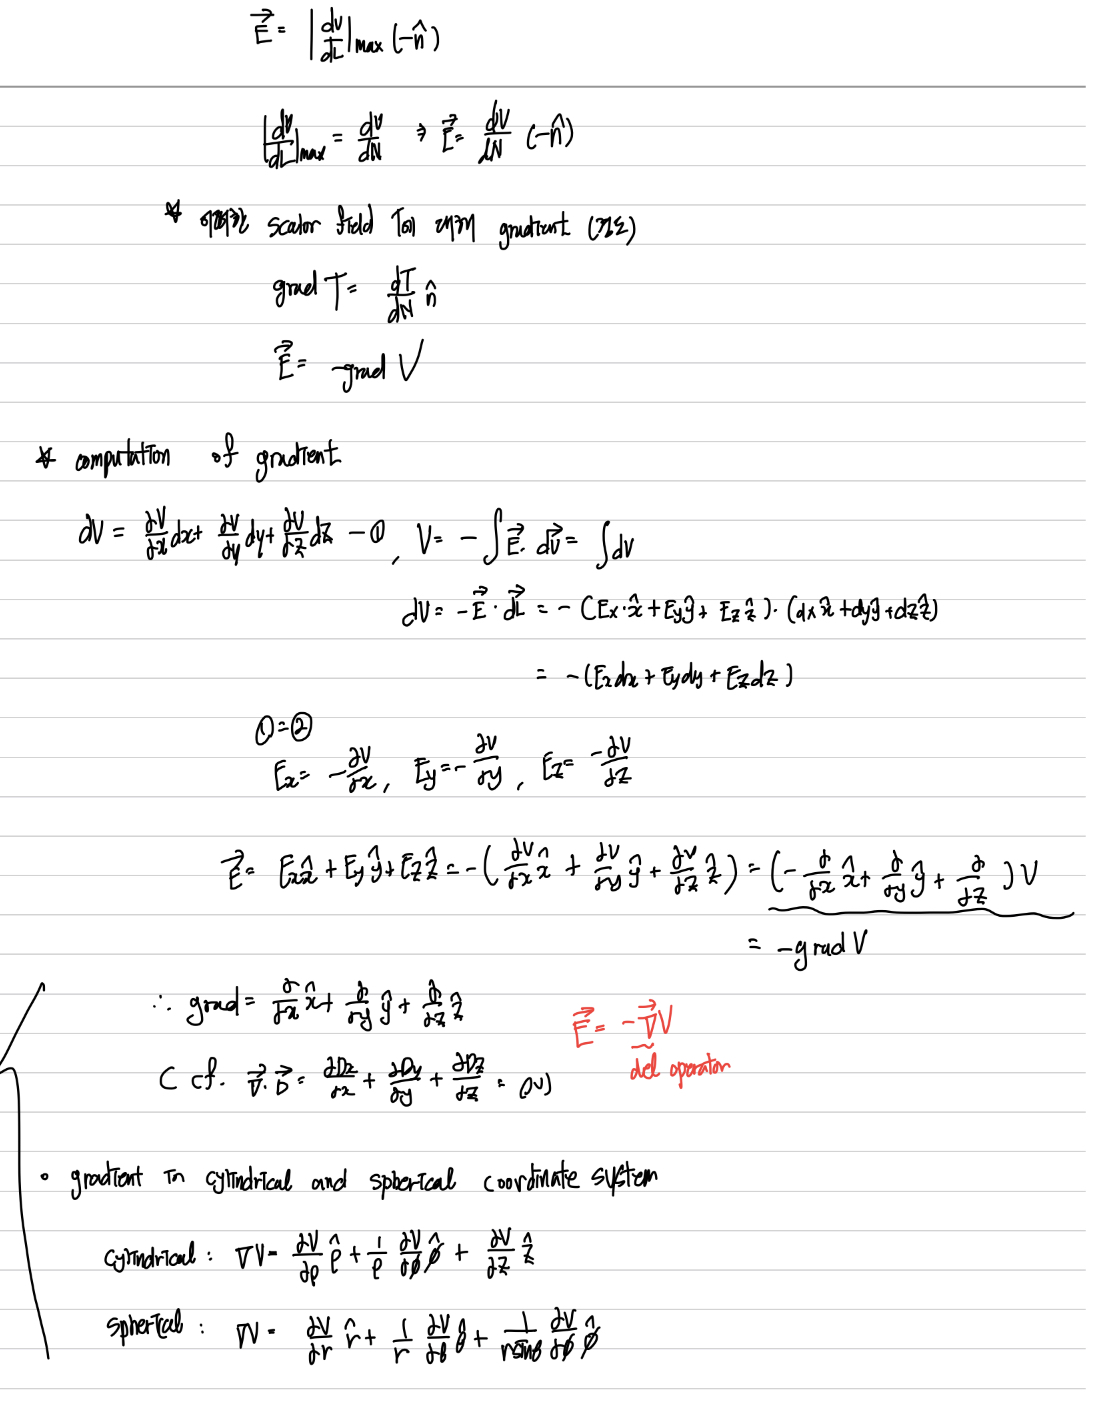 E⃗ = |dV/dL|max (-n̂)
|dV/dL|max = dV/dN ⇒ E⃗ = dV/dN (-n̂)
* 어떠한 scalar field T에 대해 gradient (경도)
grad T = dT/dN n̂
E⃗ = -grad V
* computation of gradient
dV = ∂V/∂x dx + ∂V/∂y dy + ∂V/∂z dz - ①, V = - ∫ E⃗ · dv⃗ = ∫ dV
dV = -E⃗ · dL⃗ = - (Ex·x̂ + Eyŷ + Ezẑ) · (dx x̂ + dyŷ + dzẑ)
= - (Exdx + Eydy + Ezdz)
① = ②
Ex = -∂V/∂x, Ey = -∂V/∂y, Ez = -∂V/∂z
E⃗ = Exx̂ + Eyŷ + Ezẑ = - (∂V/∂x x̂ + ∂V/∂y ŷ + ∂V/∂z ẑ) = (-∂/∂x x̂ + ∂/∂y ŷ + ∂/∂z ) V
= -grad V
∴ grad = ∂/∂x x̂ + ∂/∂y ŷ + ∂/∂z ẑ
E⃗ = -∇⃗V
del operator
( cf. ∇⃗·D⃗ = ∂Dx/∂x + ∂Dy/∂y + ∂Dz/∂z = ρv)
• gradient in cylindrical and spherical coordinate system
cylindrical : ∇V = ∂V/∂ρ ρ̂ + 1/ρ ∂V/∂φ φ̂ + ∂V/∂z ẑ
spherical : ∇V = ∂V/∂r r̂ + 1/r ∂V/∂θ θ̂ + 1/rsinθ ∂V/∂φ φ̂